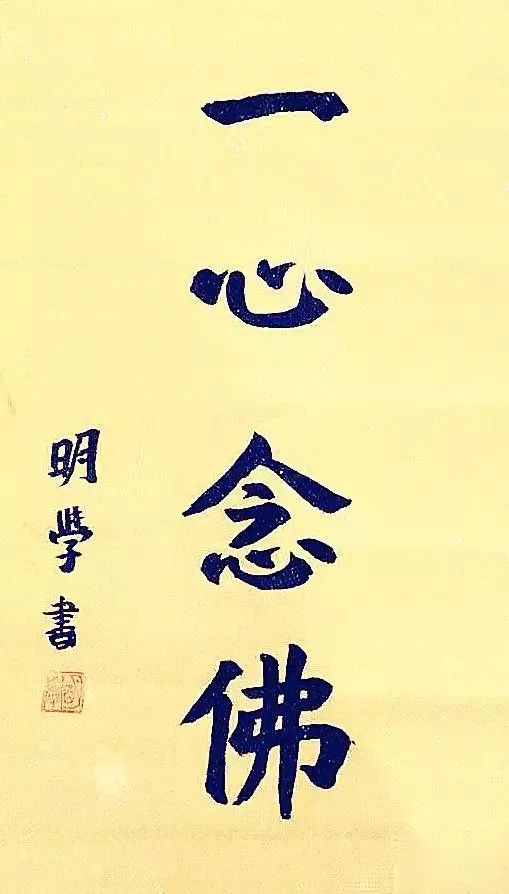 一心念佛
明學書